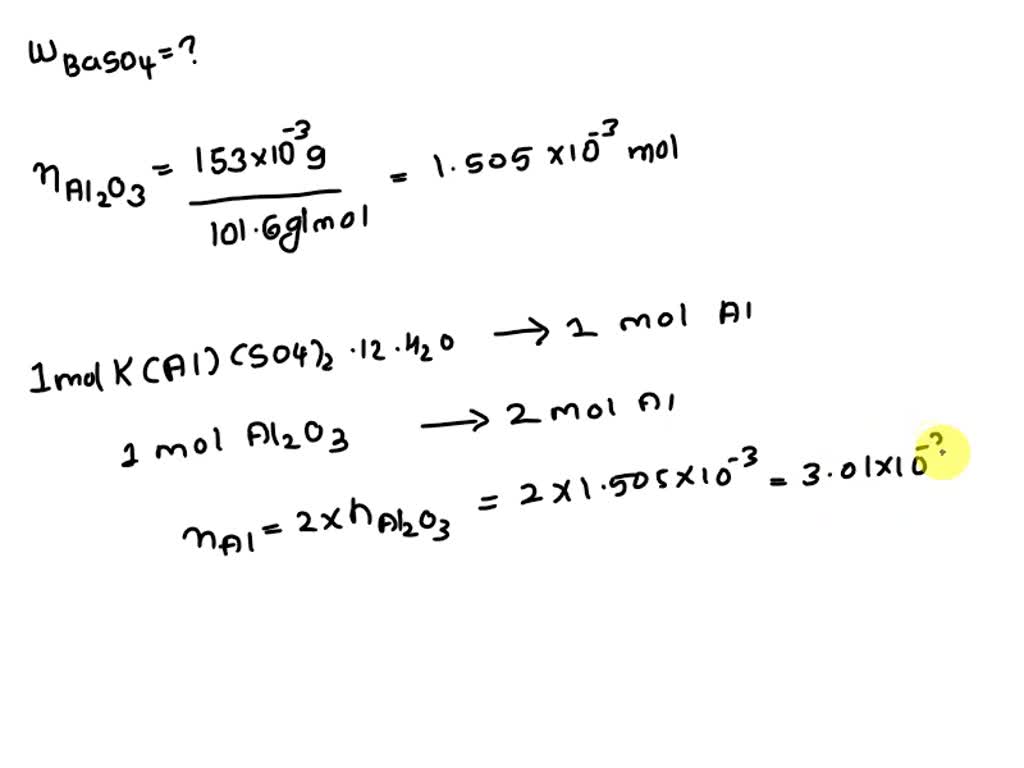 W BaSO4 = ?
n Al2O3 = 153×10^-3 g / 101.6 g/mol = 1.505 ×10^-3 mol
1 mol K(Al)(SO4)2 .12.H2O → 1 mol Al
1 mol Al2O3 → 2 mol Al
n Al = 2×n Al2O3 = 2×1.505×10^-3 = 3.01×10^-3